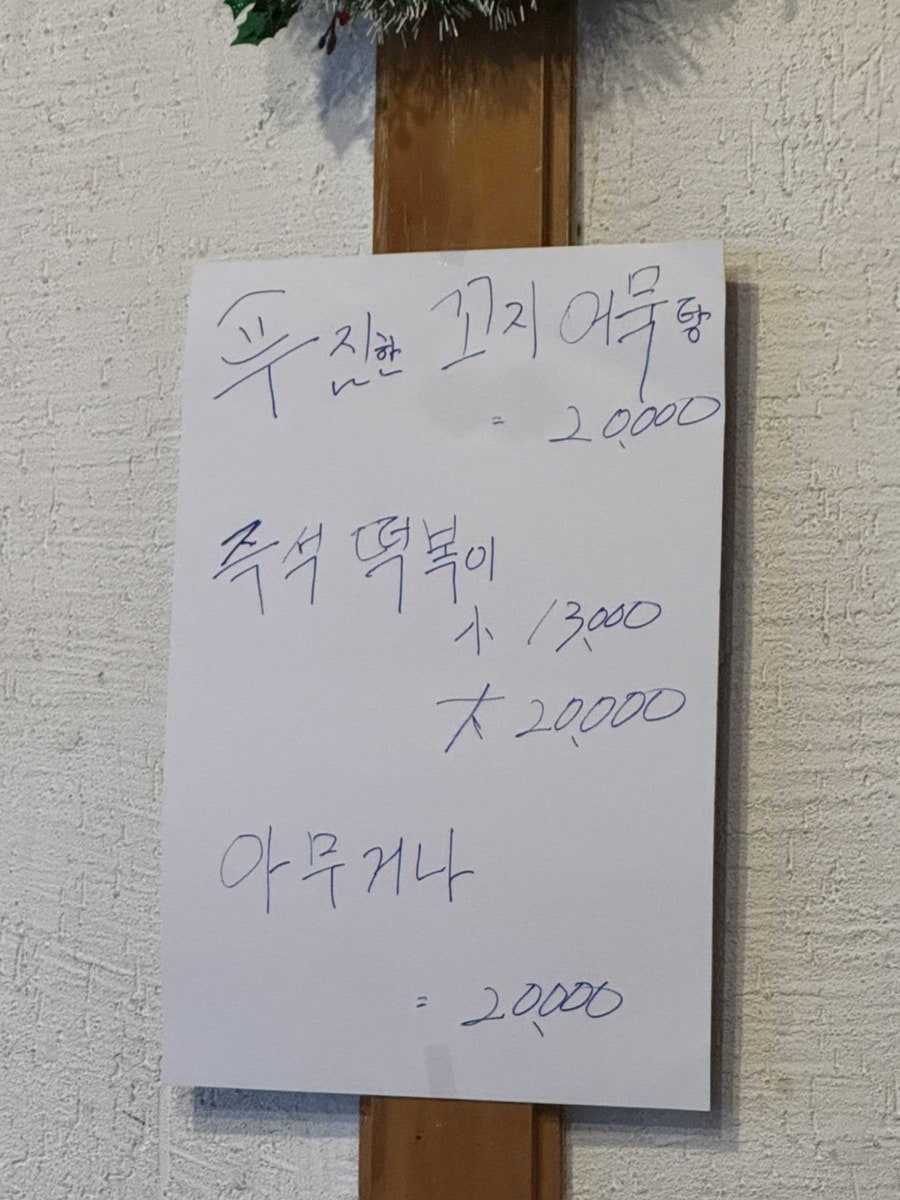 푸짐한 꼬지 어묵탕
= 20,000
즉석 떡복이
小 13,000
大 20,000
아무거나
= 20,000